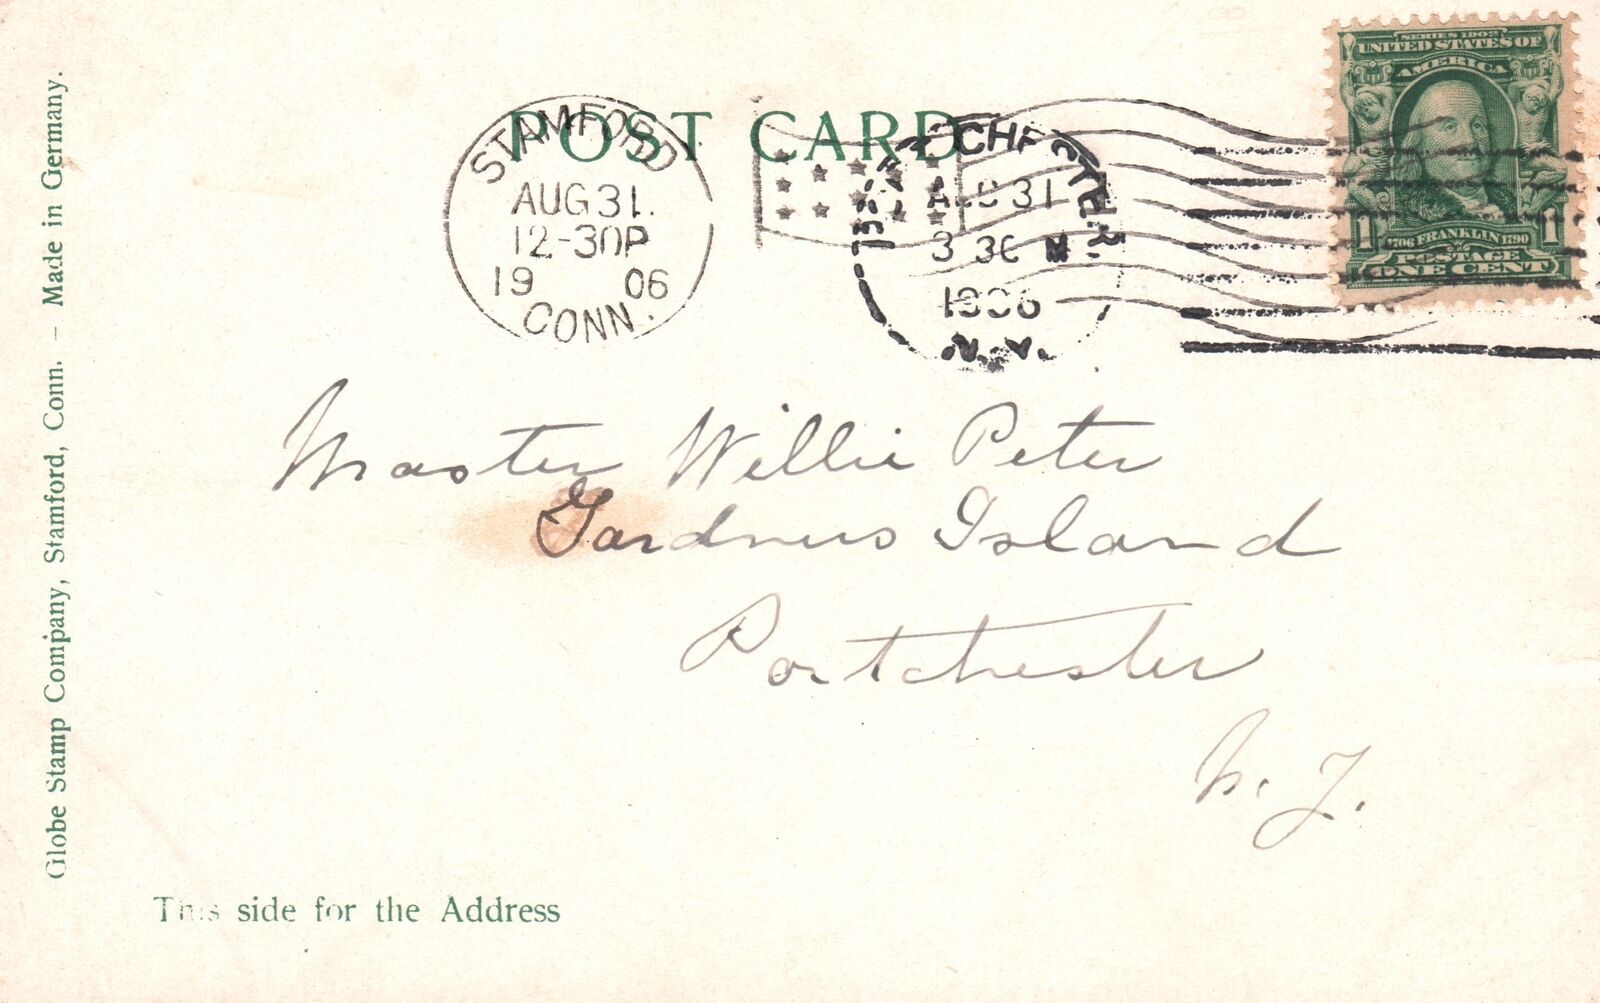 POST CARD
STAMFORD
AUG 31.
12-30P
19 06
CONN.
AUG 31
3 30 M
1906
N.Y.
SERIES 1902
UNITED STATES OF
AMERICA
1 1706 FRANKLIN 1790 1
POSTAGE
ONE CENT
Master Willie Peter
Gardners Island
Portchester
N. Y.
Globe Stamp Company, Stamford, Conn. – Made in Germany.
This side for the Address